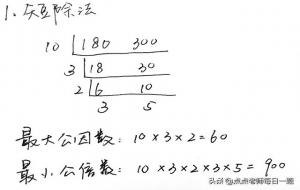 1、短除法
10 180 300
3 18 30
2 6 10
3 5
最大公因数：10×3×2=60
最小公倍数：10×3×2×3×5=900
头条 @点点老师每日一题